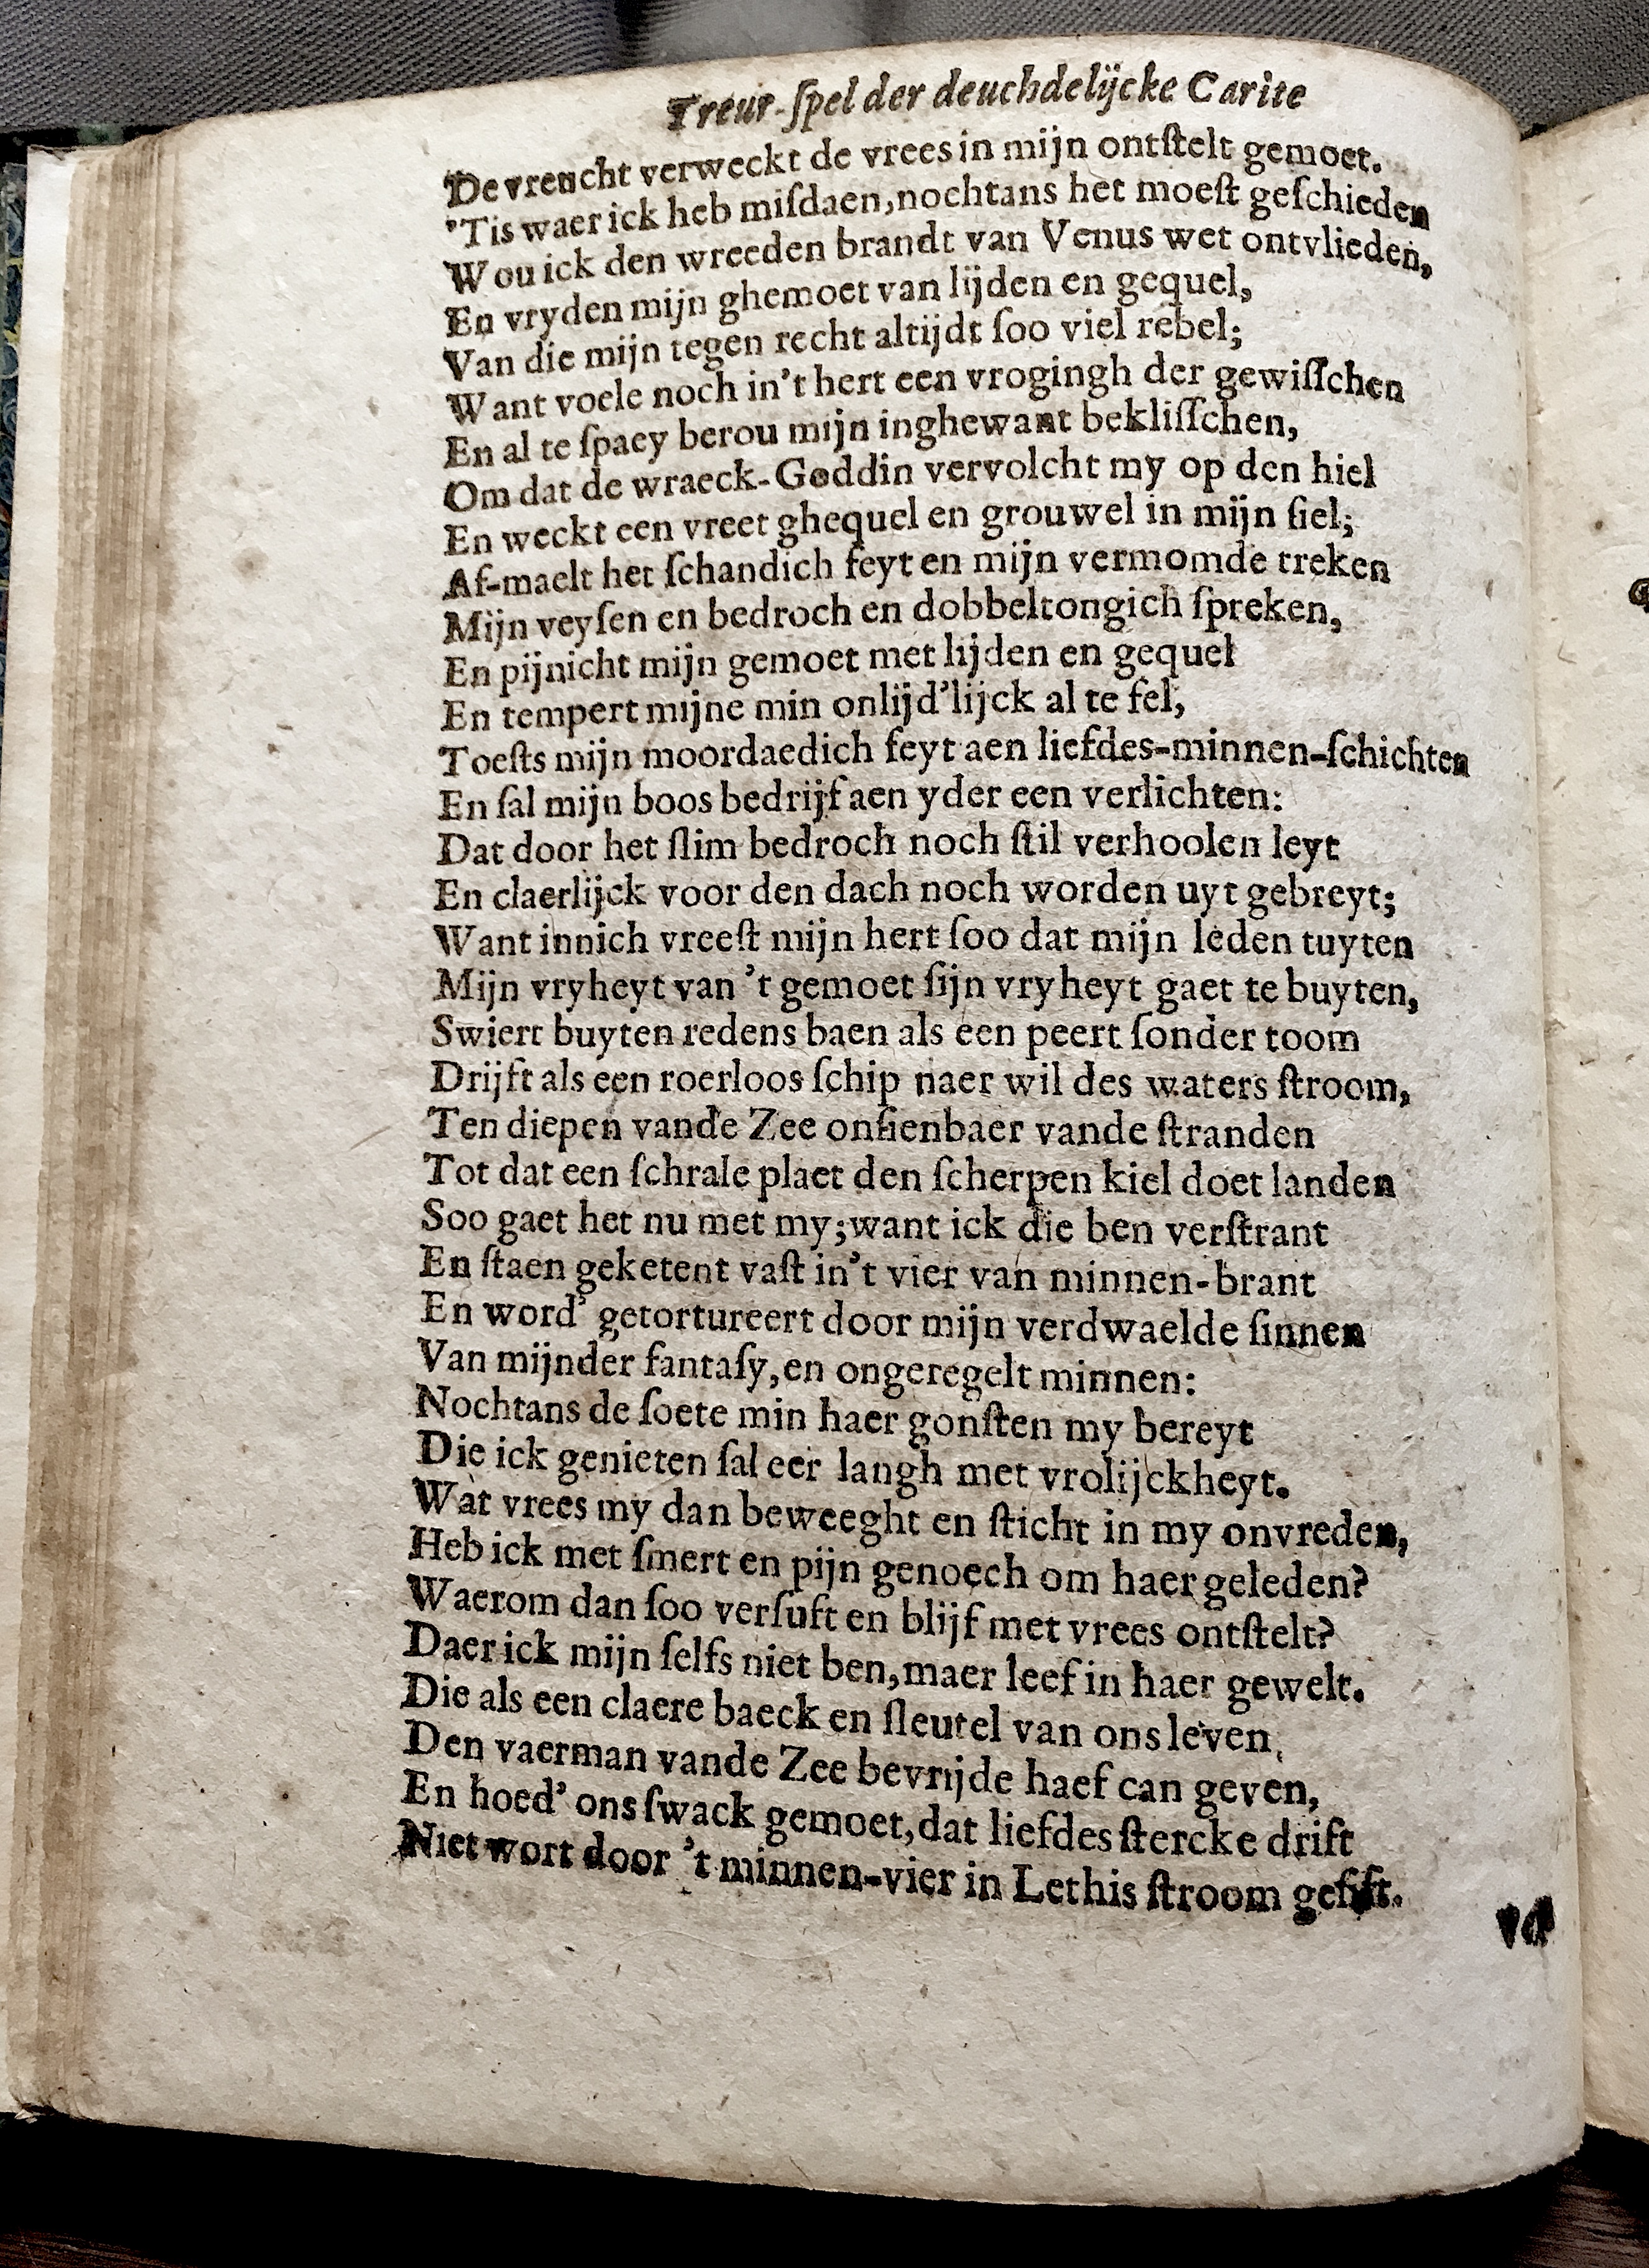 Treur-ſpel der deuchdelijcke Carite
De vreucht verweckt de vrees in mijn ontſtelt gemoet.
'Tis waer ick heb miſdaen, nochtans het moeſt geſchieden
Wou ick den wreeden brandt van Venus wet ontvlieden,
En vryden mijn ghemoet van lijden en gequel,
Van die mijn tegen recht altijdt ſoo viel rebel;
Want voele noch in't hert een vrogingh der gewiſſchen
En al te ſpaey berou mijn inghewant bekliſſchen,
Om dat de wraeck-Goddin vervolcht my op den hiel
En weckt een vreet ghequel en grouwel in mijn ſiel;
Af-maelt het ſchandich feyt en mijn vermomde treken
Mijn veyſen en bedroch en dobbeltongich ſpreken,
En pijnicht mijn gemoet met lijden en gequel
En tempert mijne min onlijd'lijck al te fel,
Toeſts mijn moordaedich feyt aen liefdes-minnen-ſchichten
En ſal mijn boos bedrijf aen yder een verlichten:
Dat door het ſlim bedroch noch ſtil verhoolen leyt
En claerlijck voor den dach noch worden uyt gebreyt;
Want innich vreeſt mijn hert ſoo dat mijn leden tuyten
Mijn vryheyt van 't gemoet ſijn vryheyt gaet te buyten,
Swiert buyten redens baen als een peert ſonder toom
Drijft als een roerloos ſchip naer wil des waters ſtroom,
Ten diepen vande Zee onſienbaer vande ſtranden
Tot dat een ſchrale plaet den ſcherpen kiel doet landen
Soo gaet het nu met my; want ick die ben verſtrant
En ſtaen geketent vaſt in't vier van minnen-brant
En word' getortureert door mijn verdwaelde ſinnen
Van mijnder fantaſy, en ongeregelt minnen:
Nochtans de ſoete min haer gonſten my bereyt
Die ick genieten ſal eer langh met vrolijckheyt.
Wat vrees my dan beweeght en ſticht in my onvreden,
Heb ick met ſmert en pijn genoech om haer geleden?
Waerom dan ſoo verſuft en blijf met vrees ontſtelt?
Daer ick mijn ſelfs niet ben, maer leef in haer gewelt.
Die als een claere baeck en ſleutel van ons leven,
Den vaerman vande Zee bevrijde haef can geven,
En hoed' ons ſwack gemoet, dat liefdes ſtercke drift
Niet wort door 't minnen-vier in Lethis ſtroom geſift.